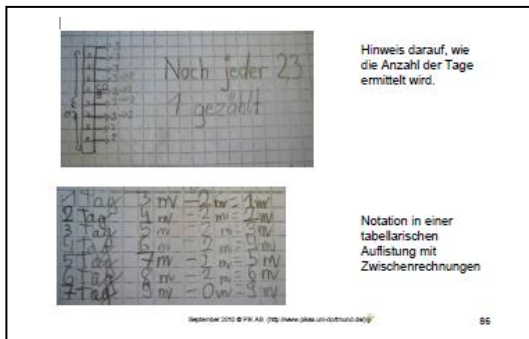 Noch jeder 23
1 gezählt
Hinweis darauf, wie
die Anzahl der Tage
ermittelt wird.
1 Tag 3 m - 2 m = 1 m
2 Tag 4 m - 2 m = 2 m
3 Tag 5 m - 2 m = 3 m
Tag 6 m - 2 m =
5 Tag 7 m - 2 m = 5 m
6 Tag 8 m - 2 m = 6 m
7 Tag 9 m - 0 m = 9 m
Notation in einer
tabellarischen
Auflistung mit
Zwischenrechnungen
September 2010 © PIK AS (http://www.pikas.uni-dortmund.de/)
86